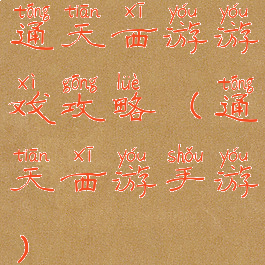 tōng tiān xī yóu yóu
通天西游游
xì gōng lüè tōng
戏攻略（通
tiān xī yóu shǒu yóu
天西游手游
）